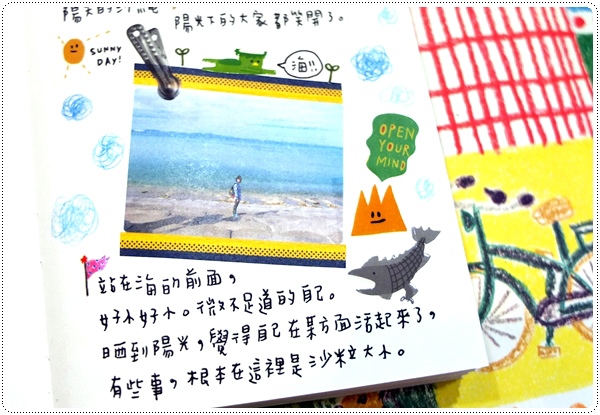 陽光的
陽光下的大家都笑開了。
SUNNY
DAY!
海!!
OPEN
YOUR
MIND
站在海的前面，
好小好小。微不足道的自己。
晒到陽光，覺得自己在某方面活起來了，
有些事，根本在這裡是沙粒大小。